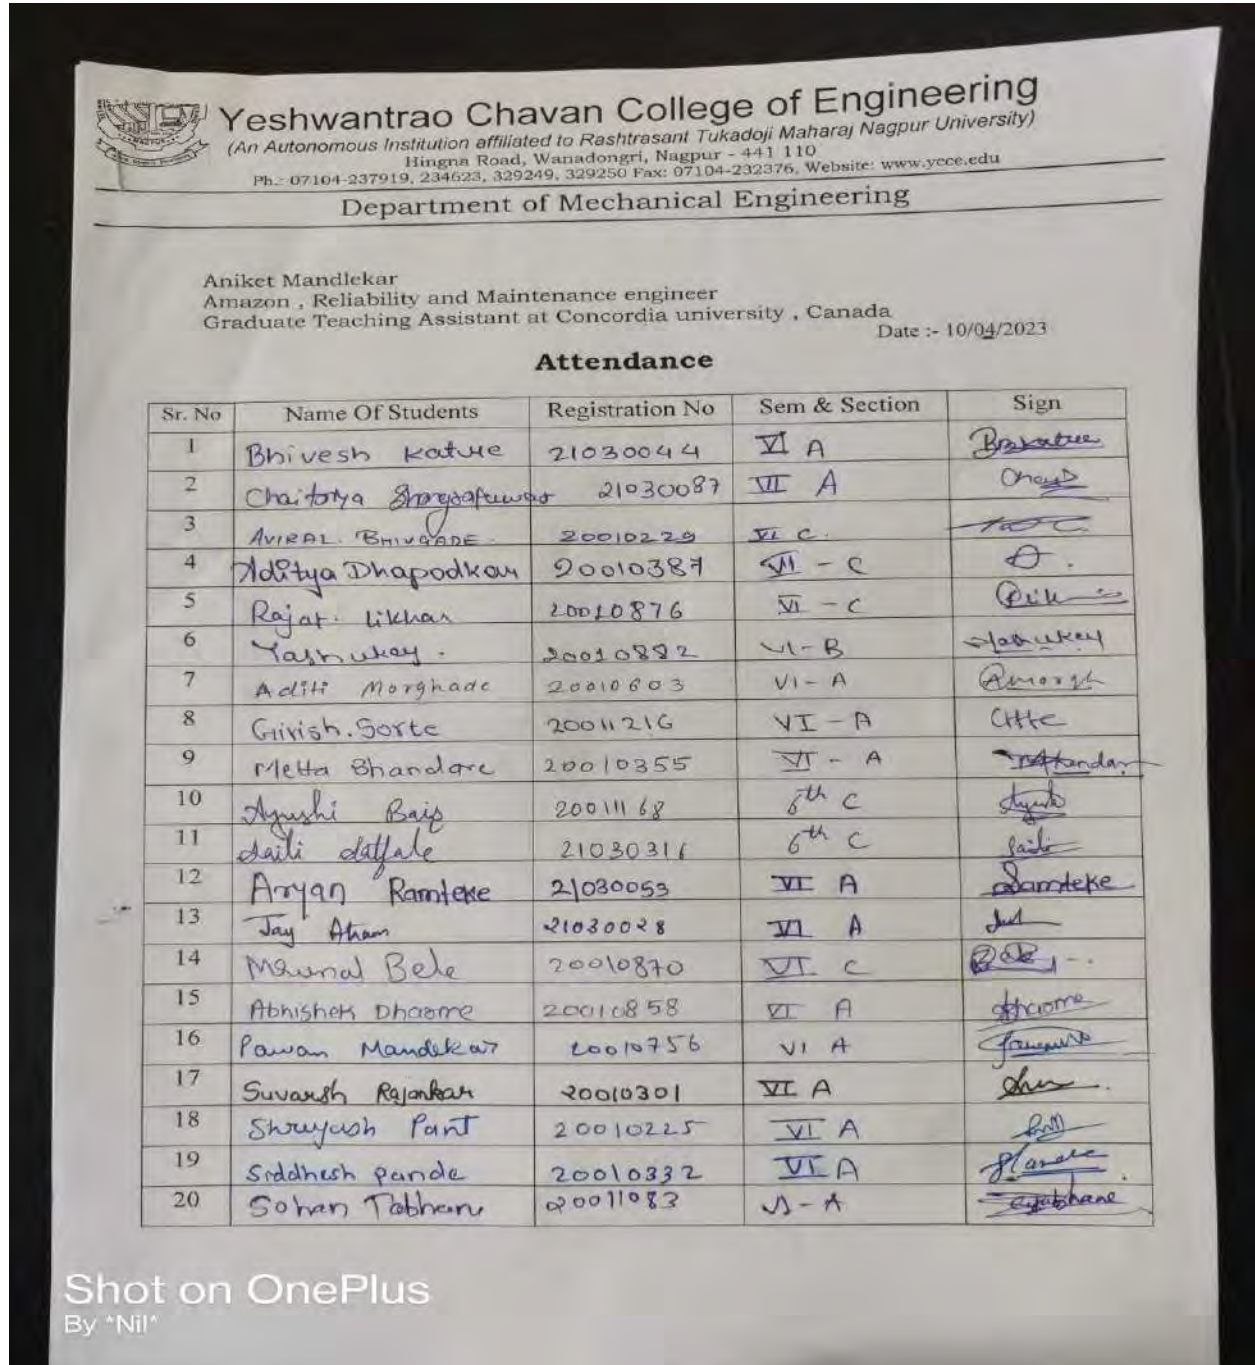 Yeshwantrao Chavan College of Engineering
(An Autonomous Institution affiliated to Rashtrasant Tukadoji Maharaj Nagpur University)
Hingna Road, Wanadongri, Nagpur - 441 110
Ph.: 07104-237919, 234623, 329249, 329250 Fax: 07104-232376, Website: www.ycce.edu
Department of Mechanical Engineering
Aniket Mandlekar
Amazon , Reliability and Maintenance engineer
Graduate Teaching Assistant at Concordia university , Canada
Date :- 10/04/2023
Attendance
Sr. No Name Of Students Registration No Sem & Section Sign
1 Bhivesh Kature 21030044 VI A
2 Chaitanya 21030087 VII A
3 AVIRAL BHIVGADE 20010229 VI C
4 Aditya Dhapodkar 20010387 VII - C
5 Rajat Likhar 20010876 VI - C
6 Yash ukey. 20010882 VI - B
7 Aditi Morghade 20010603 VI - A
8 Girish. Sorte 20011216 VI - A
9 Metta Bhandare 20010355 VI - A
10 Ayushi Bais 20011168 6th C
11 Saili 21030316 6th C
12 Aryan Ramteke 21030053 VI A Ramteke
13 Jay Atram 21030028 VI A
14 Mrunal Bele 20010870 VI C
15 Abhishek Dhaome 20010858 VI A Dhaome
16 Pawan Mandekar 20010756 VI A
17 Suvarsh Rajankar 20010301 VI A
18 Shreyash Pant 20010225 VI A
19 Siddhesh pande 20010332 VI A
20 Sohan Tabhane 20011083 VI - A
Shot on OnePlus
By *Nil*